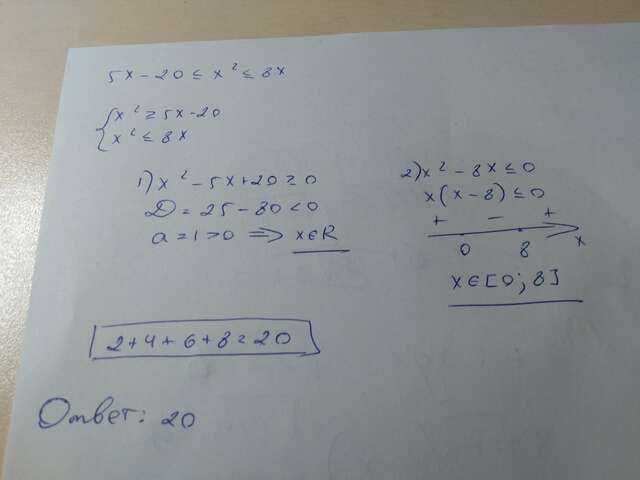 5x - 20 ≤ x² ≤ 8x
{ x² ≥ 5x - 20
x² ≤ 8x
1) x² - 5x + 20 ≥ 0
D = 25 - 80 < 0
a = 1 > 0 => x ∈ R
2) x² - 8x ≤ 0
x(x - 8) ≤ 0
+ - +
0 8 x
x ∈ [0; 8]
2 + 4 + 6 + 8 = 20
Ответ: 20